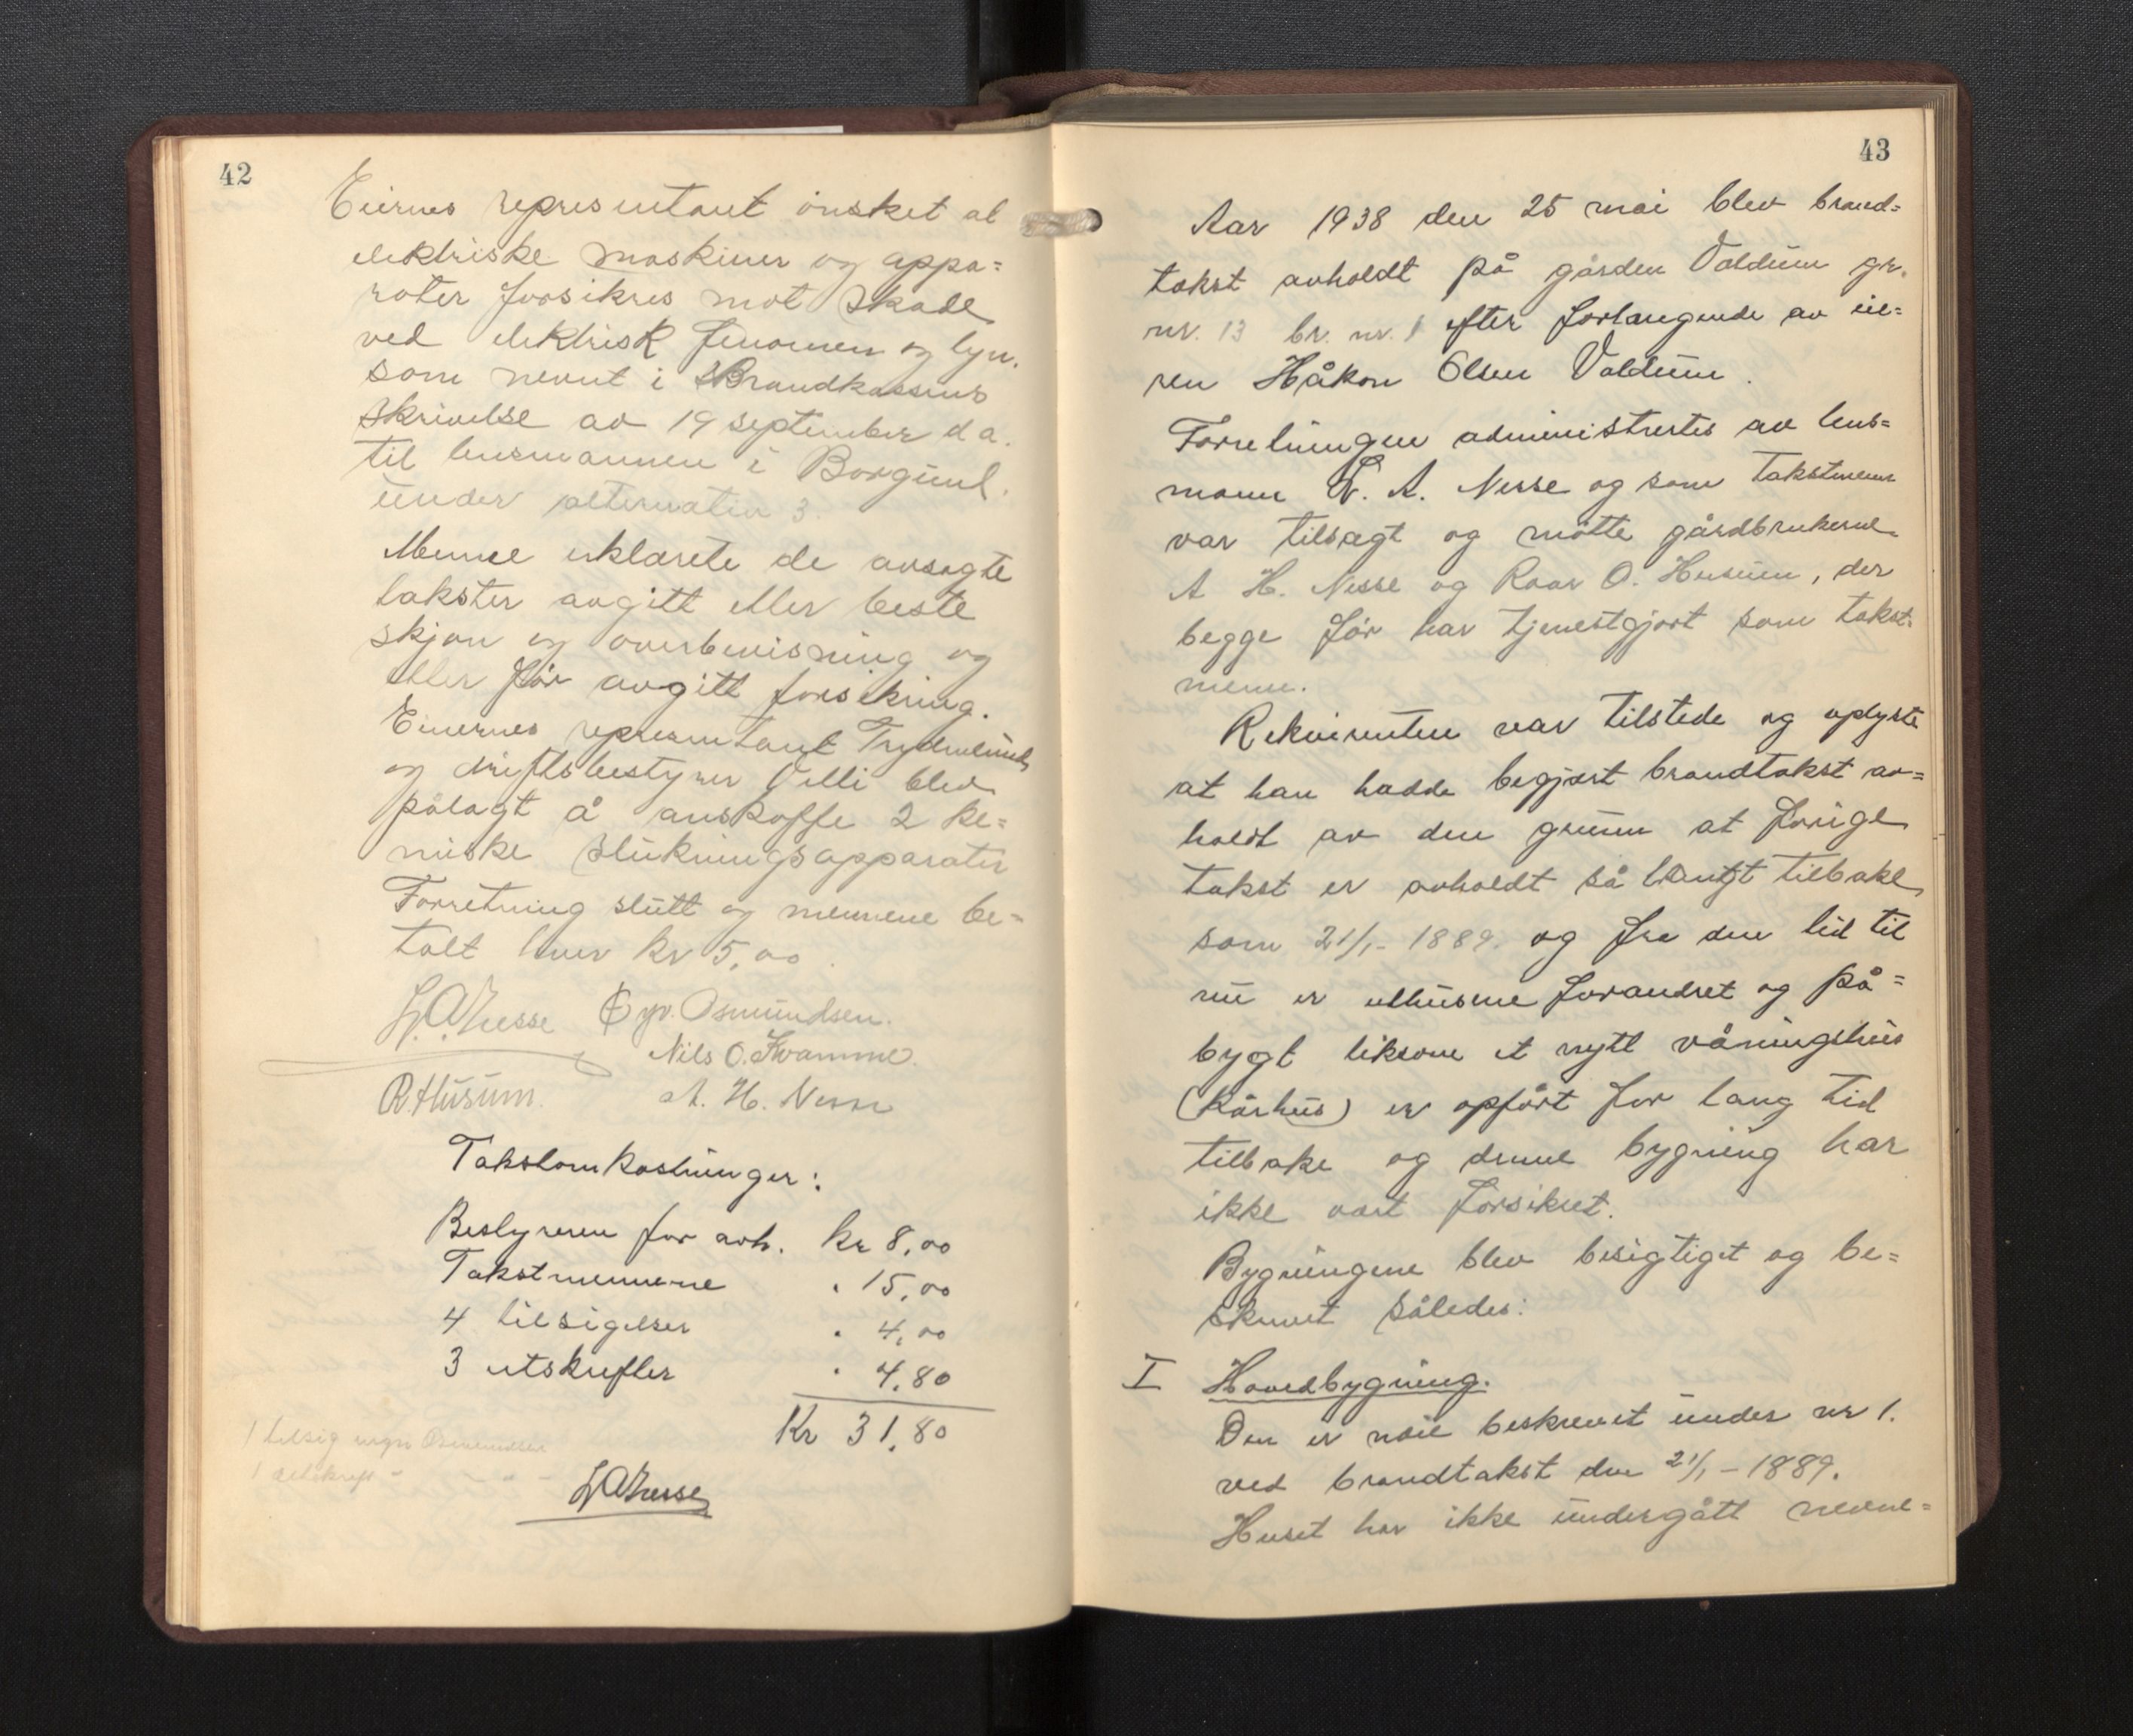 42
Eiernes representant ønsket at
elektriske maskiner og appa=
rater forsikres mot skade
ved elektrisk fenomen og lyn.
som nevnt i Brandkassens
skrivelse av 19 september d a.
til lensmannen i Borgund.
under alternativ 3.
Mennene erklærte de avsagte
takster avgitt efter beste
skjøn og overbevisning og
efter før avgitt forsikring.
Eiernes representant
og driftsbestyrer Velli blev
pålagt å anskaffe 2 ke=
miske slukningsapparater
Forretning slutt og mennene be=
talt hver kr 5,00.
L.A. Nesse Gyv. Osmundsen.
Nils O. Kvamme.
R. Husum. A. H. Nesse
Takstomkostninger:
Bestyreren for avh. kr 8,00
Takstmennene " 15,00
4 tilsigelser " 4,00
3 utskrifter " 4,80
Kr 31,80
1 tilsig Osmundsen
1 utskrift - - " -
L A Nesse
43
Aar 1938 den 25 mai blev brand=
takst avholdt på gården Voldum gr.
nr. 13 br. nr. 1 efter forlangende av eie=
ren Håkon Olsen Voldum.
Forretningen administrertes av lens=
mann L. A. Nesse og som takstmenn
var tilsagt og møtte gårdbrukerne
A H. Nesse og Roar O. Husum, der
begge før har tjenestgjort som takst=
menn.
Rekvirenten var tilstede og oplyste
at han hadde begjært brandtakst av=
holdt av den grunn at forrige
takst er avholdt så langt tilbake
som 21/1- 1889. og fra den tid til
nu er uthusene forandret og på=
bygt liksom et nytt våningshus
(kårhus) er opført for lang tid
tilbake og denne bygning har
ikke vært forsikret.
Bygningene blev besigtiget og be=
skrevet således:
I Hovedbygning.
Den er nøie beskrevet under nr 1.
ved brandtakst den 21/1 - 1889.
Huset har ikke undergått nevne=